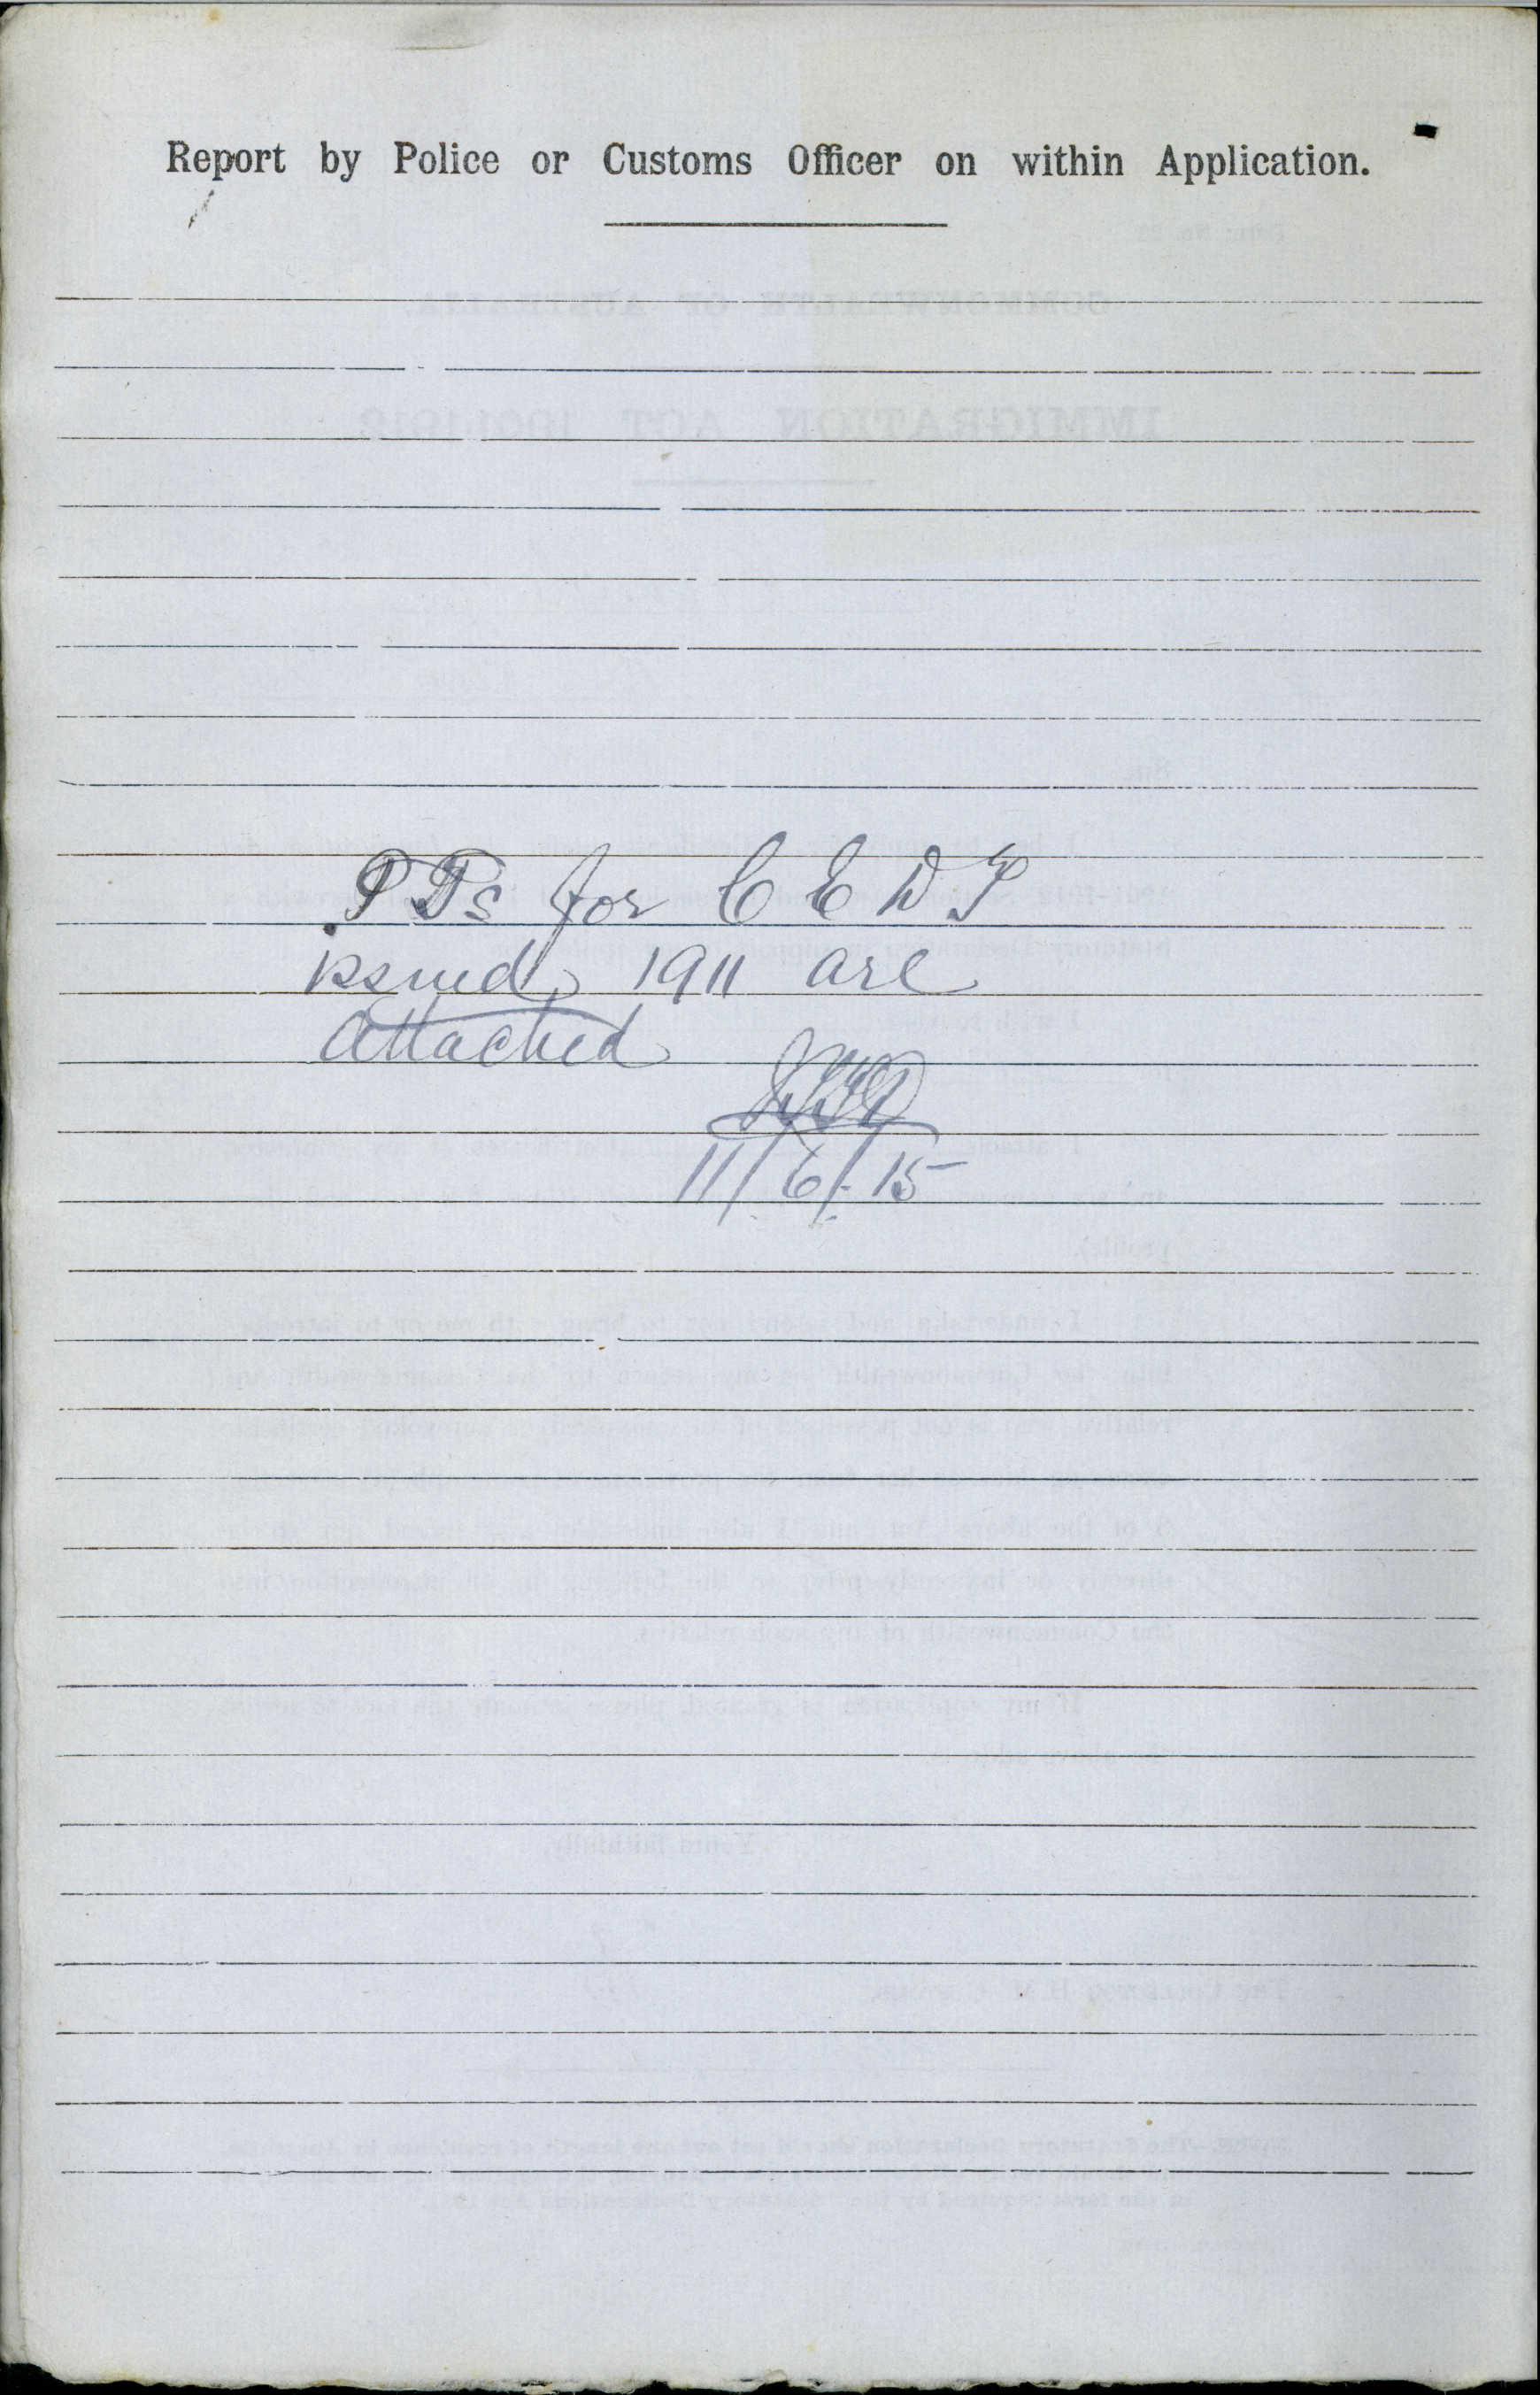 Report by Police or Customs Officer on within Application.
PPs for C E D T
issued 1911 are
attached
11/6/15